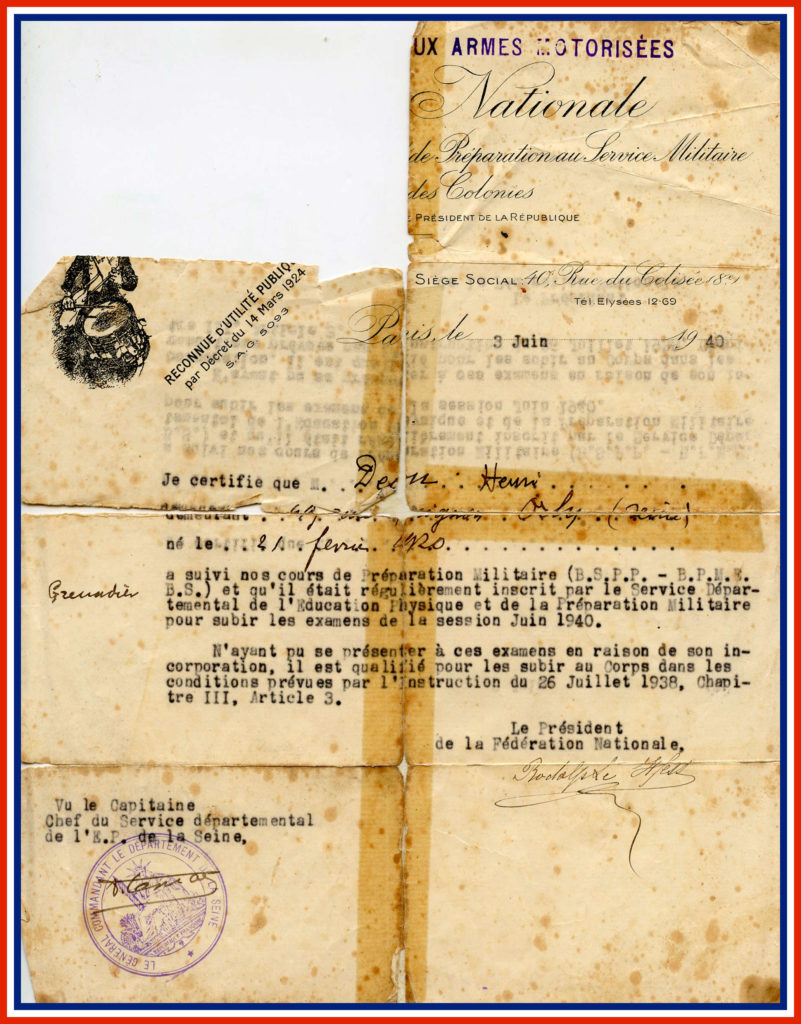 UX ARMES MOTORISÉES
Nationale
de Préparation au Service Militaire
des Colonies
PRÉSIDENT DE LA RÉPUBLIQUE
RECONNUE D'UTILITÉ PUBLIQU
par Décret du 14 Mars 1924
S.A.G 5093
SIÈGE SOCIAL 40, Rue du Colisée (8e)
Tél. Elysées 12-69
Paris, le 3 Juin 1940
Je certifie que M. . . Henri . . . . . . .
demeurant . . Orly (Seine)
né le 21 février 1920. . . . . . . . . . . . . .
Grenadier
a suivi nos cours de Préparation Militaire (B.S.P.P. - B.P.M.E.
B.S.) et qu'il était régulièrement inscrit par le Service Dépar-
temental de l'Education Physique et de la Préparation Militaire
pour subir les examens de la session Juin 1940.
N'ayant pu se présenter à ces examens en raison de son in-
corporation, il est qualifié pour les subir au Corps dans les
conditions prévues par l'Instruction du 26 Juillet 1938, Chapi-
tre III, Article 3.
Le Président
de la Fédération Nationale,
Rodolphe
Vu le Capitaine
Chef du Service départemental
de l'E.P. de la Seine,
LE GÉNÉRAL COMMANDANT LE DÉPARTEMENT SEINE